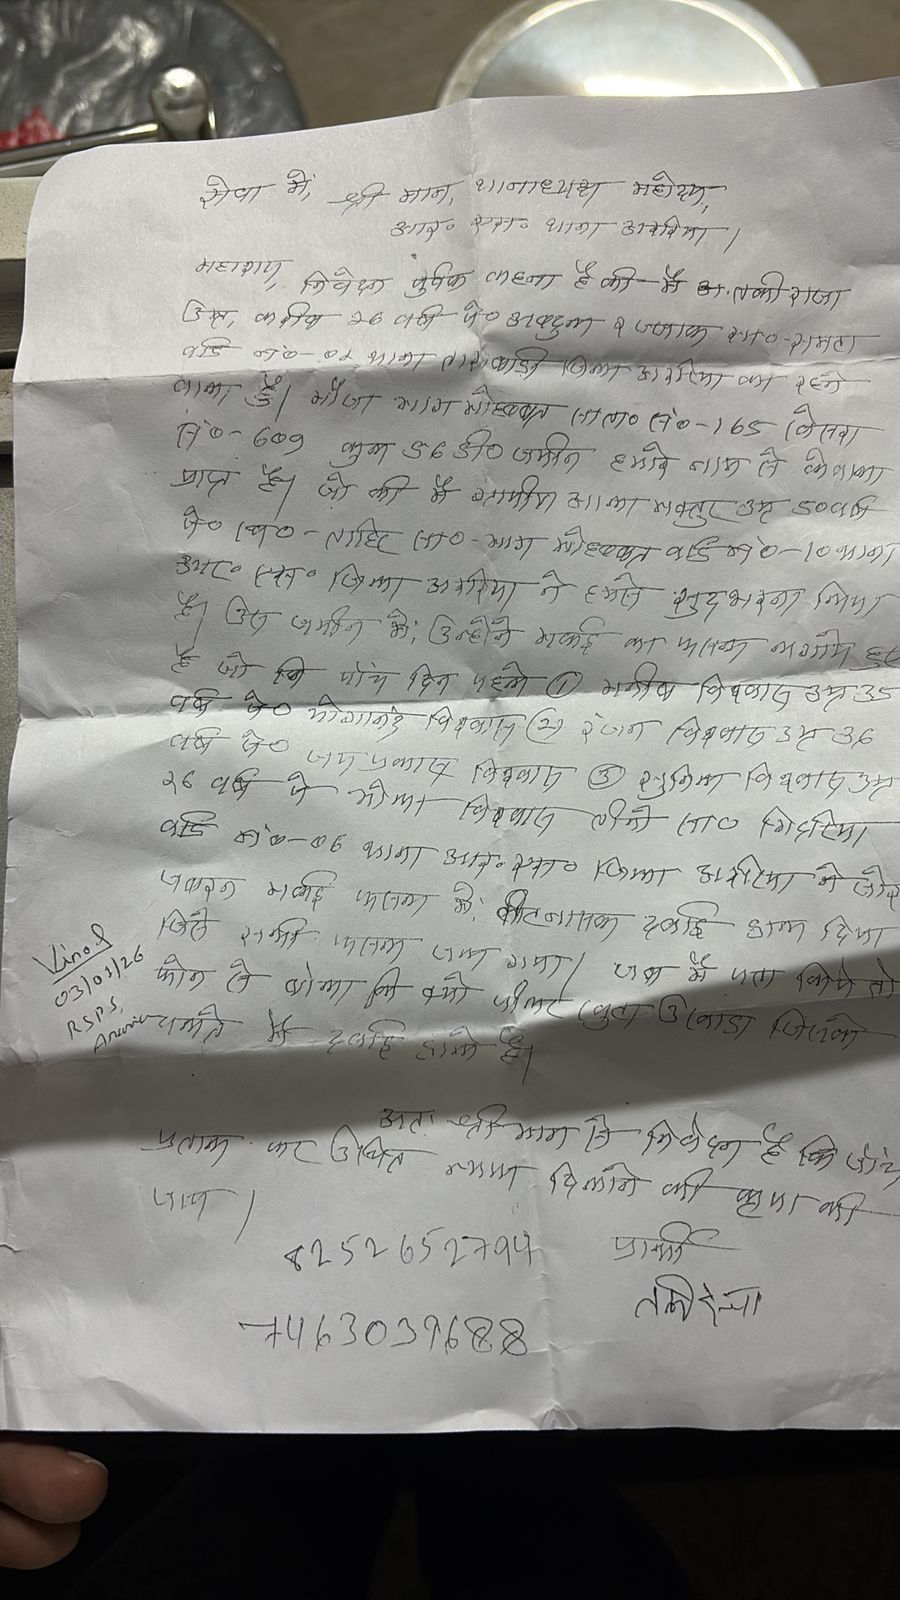 सेवा में, श्री मान, थानाध्यक्ष महोदय,
आर० एस० थाना अररिया।
महाशय, निवेदन पुर्वक कहना है की मै तकी राजा
उम्र, करीब 26 वर्ष पे० अबदुल रज्जाक सा०-रामटा
वार्ड नं०-02 थाना जिला अररिया का रहने
वाला हुँ। मौजा भाग मोहब्बत था० नं०-165 खेसरा
नं०-609 कुल 56 डी० जमीन हमारे नाम से केवाला
प्राप्त है। जो की मै उम्र 50 वर्ष
पे० स्व०-ताहिर सा०-भाग मोहब्बत वार्ड नं०-10 थाना
आर० एस० जिला अररिया ने हमसे सुदभरना लिया
है। उस जमीन में, उन्होंने मकई का फसल लगाये हुए
है जो कि पांच दिन पहले ① मनीष विश्वास उम्र 35
वर्ष पे० योगानंद विश्वास ② रंजन विश्वास उम्र 36
वर्ष पे० जय प्रकाश विश्वास ③ सुमित विश्वास उम्र
26 वर्ष पे भोला विश्वास तीनो सा० गिदरिया
वार्ड नं०-06 थाना आर० एस० जिला अररिया ने जोर
जबरन मकई फसल में, कीटनाशक दवाई डाल दिया
जिसे सभी फसल जल गया। जब मै पता किये तो
फोन से बोला कि क्यों पीलर खुटा उखाड़ा जिसके
चलते मै दवाई डाले है।
Vinod
03/01/26
RSPS,
Araria
अतः श्री मान से निवेदन है कि जांच
पड़ताल कर उचित न्याय दिलाने की कृपा की
जाय।
8252652794 प्रार्थी
7463039688